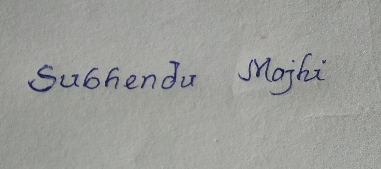 Subhendu Majhi